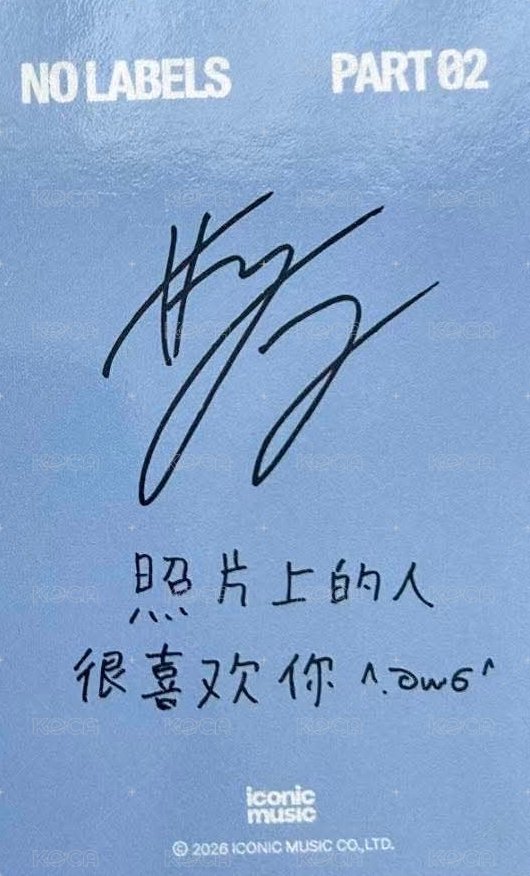 NO LABELS PART 02
照片上的人
很喜欢你 ^.ᘐwര^
iconic
music
© 2026 ICONIC MUSIC CO.,LTD.
KOCA